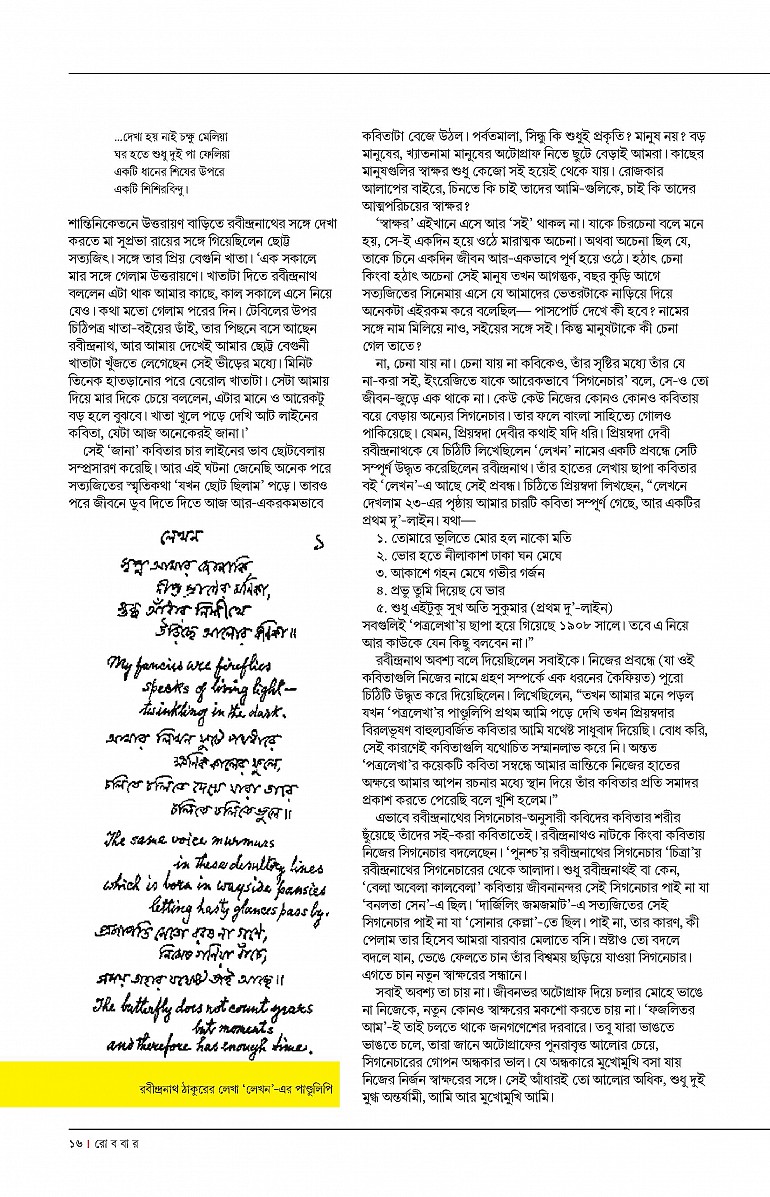 ...দেখা হয় নাই চক্ষু মেলিয়া
ঘর হতে শুধু দুই পা ফেলিয়া
একটি ধানের শিষের উপরে
একটি শিশিরবিন্দু।
শান্তিনিকেতনে উত্তরায়ণ বাড়িতে রবীন্দ্রনাথের সঙ্গে দেখা
করতে মা সুপ্রভা রায়ের সঙ্গে গিয়েছিলেন ছোট্ট
সত্যজিৎ। সঙ্গে তার প্রিয় বেগুনি খাতা। ‘এক সকালে
মার সঙ্গে গেলাম উত্তরায়ণে। খাতাটা দিতে রবীন্দ্রনাথ
বললেন এটা থাক আমার কাছে, কাল সকালে এসে নিয়ে
যেও। কথা মতো গেলাম পরের দিন। টেবিলের উপর
চিঠিপত্র খাতা-বইয়ের ডাঁই, তার পিছনে বসে আছেন
রবীন্দ্রনাথ, আর আমায় দেখেই আমার ছোট্ট বেগুনী
খাতাটা খুঁজতে লেগেছেন সেই ভীড়ের মধ্যে। মিনিট
তিনেক হাতড়ানোর পরে বেরোল খাতাটা। সেটা আমায়
দিয়ে মার দিকে চেয়ে বললেন, এটার মানে ও আরেকটু
বড় হলে বুঝবে। খাতা খুলে পড়ে দেখি আট লাইনের
কবিতা, যেটা আজ অনেকেরই জানা।’
সেই ‘জানা’ কবিতার চার লাইনের ভাব ছোটবেলায়
সম্প্রসারণ করেছি। আর এই ঘটনা জেনেছি অনেক পরে
সত্যজিতের স্মৃতিকথা ‘যখন ছোট ছিলাম’ পড়ে। তারও
পরে জীবনে ডুব দিতে দিতে আজ আর-একরকমভাবে
লেখন
১
স্বপ্ন আমার জোনাকি
দীপ্ত প্রাণের মণিকা,
স্তব্ধ আঁধার নিশীথে
উড়িছে আলোর কণিকা॥
My fancies are fireflies
specks of living light—
twinkling in the dark.
আমার লিখন ফুটে পথধারে
ক্ষণিক কালের ফুলে,
চলিতে চলিতে দেখে যারা তারে
চলিতে চলিতে ভুলে॥
The same voice murmurs
in these desultory lines
which is born in wayside pansies
letting hasty glances pass by.
প্রজাপতি সেতো বরষ না গণে,
নিমেষ গণিয়া বাঁচে,
সময় তাহার যথেষ্ট তাই আছে॥
The butterfly does not count years
but moments
and therefore has enough time.
রবীন্দ্রনাথ ঠাকুরের লেখা ‘লেখন’-এর পাণ্ডুলিপি
কবিতাটা বেজে উঠল। পর্বতমালা, সিন্ধু কি শুধুই প্রকৃতি? মানুষ নয়? বড়
মানুষের, খ্যাতনামা মানুষের অটোগ্রাফ নিতে ছুটে বেড়াই আমরা। কাছের
মানুষগুলির স্বাক্ষর শুধু কেজো সই হয়েই থেকে যায়। রোজকার
আলাপের বাইরে, চিনতে কি চাই তাদের আমি-গুলিকে, চাই কি তাদের
আত্মপরিচয়ের স্বাক্ষর?
‘স্বাক্ষর’ এইখানে এসে আর ‘সই’ থাকল না। যাকে চিরচেনা বলে মনে
হয়, সে-ই একদিন হয়ে ওঠে মারাত্মক অচেনা। অথবা অচেনা ছিল যে,
তাকে চিনে একদিন জীবন আর-একভাবে পূর্ণ হয়ে ওঠে। হঠাৎ চেনা
কিংবা হঠাৎ অচেনা সেই মানুষ তখন আগন্তুক, বছর কুড়ি আগে
সত্যজিতের সিনেমায় এসে যে আমাদের ভেতরটাকে নাড়িয়ে দিয়ে
অনেকটা এইরকম করে বলেছিল— পাসপোর্ট দেখে কী হবে? নামের
সঙ্গে নাম মিলিয়ে নাও, সইয়ের সঙ্গে সই। কিন্তু মানুষটাকে কী চেনা
গেল তাতে?
না, চেনা যায় না। চেনা যায় না কবিকেও, তাঁর সৃষ্টির মধ্যে তাঁর যে
না-করা সই, ইংরেজিতে যাকে আরেকভাবে ‘সিগনেচার’ বলে, সে-ও তো
জীবন-জুড়ে এক থাকে না। কেউ কেউ নিজের কোনও কোনও কবিতায়
বয়ে বেড়ায় অন্যের সিগনেচার। তার ফলে বাংলা সাহিত্যে গোলও
পাকিয়েছে। যেমন, প্রিয়ম্বদা দেবীর কথাই যদি ধরি। প্রিয়ম্বদা দেবী
রবীন্দ্রনাথকে যে চিঠিটি লিখেছিলেন ‘লেখন’ নামের একটি প্রবন্ধে সেটি
সম্পূর্ণ উদ্ধৃত করেছিলেন রবীন্দ্রনাথ। তাঁর হাতের লেখায় ছাপা কবিতার
বই ‘লেখন’-এ আছে সেই প্রবন্ধ। চিঠিতে প্রিয়ম্বদা লিখছেন, “লেখনে
দেখলাম ২৩-এর পৃষ্ঠায় আমার চারটি কবিতা সম্পূর্ণ গেছে, আর একটির
প্রথম দু’-লাইন। যথা—
১. তোমারে ভুলিতে মোর হল নাকো মতি
২. ভোর হতে নীলাকাশ ঢাকা ঘন মেঘে
৩. আকাশে গহন মেঘে গভীর গর্জন
৪. প্রভু তুমি দিয়েছ যে ভার
৫. শুধু এইটুকু সুখ অতি সুকুমার (প্রথম দু’-লাইন)
সবগুলিই ‘পত্রলেখা’য় ছাপা হয়ে গিয়েছে ১৯০৮ সালে। তবে এ নিয়ে
আর কাউকে যেন কিছু বলবেন না।”
রবীন্দ্রনাথ অবশ্য বলে দিয়েছিলেন সবাইকে। নিজের প্রবন্ধে (যা ওই
কবিতাগুলি নিজের নামে গ্রহণ সম্পর্কে এক ধরনের কৈফিয়ত) পুরো
চিঠিটি উদ্ধৃত করে দিয়েছিলেন। লিখেছিলেন, “তখন আমার মনে পড়ল
যখন ‘পত্রলেখা’র পাণ্ডুলিপি প্রথম আমি পড়ে দেখি তখন প্রিয়ম্বদার
বিরলভূষণ বাহুল্যবর্জিত কবিতার আমি যথেষ্ট সাধুবাদ দিয়েছি। বোধ করি,
সেই কারণেই কবিতাগুলি যথোচিত সম্মানলাভ করে নি। অন্তত
‘পত্রলেখা’র কয়েকটি কবিতা সম্বন্ধে আমার ভ্রান্তিকে নিজের হাতের
অক্ষরে আমার আপন রচনার মধ্যে স্থান দিয়ে তাঁর কবিতার প্রতি সমাদর
প্রকাশ করতে পেরেছি বলে খুশি হলেম।”
এভাবে রবীন্দ্রনাথের সিগনেচার-অনুসারী কবিদের কবিতার শরীর
ছুঁয়েছে তাঁদের সই-করা কবিতাতেই। রবীন্দ্রনাথও নাটকে কিংবা কবিতায়
নিজের সিগনেচার বদলেছেন। ‘পুনশ্চ’য় রবীন্দ্রনাথের সিগনেচার ‘চিত্রা’য়
রবীন্দ্রনাথের সিগনেচারের থেকে আলাদা। শুধু রবীন্দ্রনাথই বা কেন,
‘বেলা অবেলা কালবেলা’ কবিতায় জীবনানন্দর সেই সিগনেচার পাই না যা
‘বনলতা সেন’-এ ছিল। ‘দার্জিলিং জমজমাট’-এ সত্যজিতের সেই
সিগনেচার পাই না যা ‘সোনার কেল্লা’-তে ছিল। পাই না, তার কারণ, কী
পেলাম তার হিসেব আমরা বারবার মেলাতে বসি। স্রষ্টাও তো বদলে
বদলে যান, ভেঙে ফেলতে চান তাঁর বিশ্বময় ছড়িয়ে যাওয়া সিগনেচার।
এগতে চান নতুন স্বাক্ষরের সন্ধানে।
সবাই অবশ্য তা চায় না। জীবনভর অটোগ্রাফ দিয়ে চলার মোহে ভাঙে
না নিজেকে, নতুন কোনও স্বাক্ষরের মকশো করতে চায় না। ‘ফজলিতর
আম’-ই তাই চলতে থাকে জনগণেশের দরবারে। তবু যারা ভাঙতে
ভাঙতে চলে, তারা জানে অটোগ্রাফের পুনরাবৃত্ত আলোর চেয়ে,
সিগনেচারের গোপন অন্ধকার ভাল। যে অন্ধকারে মুখোমুখি বসা যায়
নিজের নির্জন স্বাক্ষরের সঙ্গে। সেই আঁধারই তো আলোর অধিক, শুধু দুই
মুগ্ধ অন্তর্যামী, আমি আর মুখোমুখি আমি।
১৬ | রো ব বা র